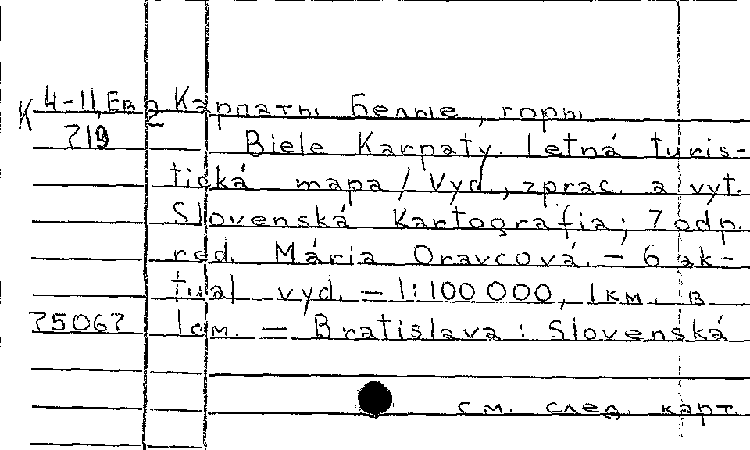 К 4-11,Ев 2 Карпаты Белые, горы
719 Biele Karpaty. Letná turis-
tická mapa / Vyd., zprac. a vyt.
Slovenská Kartografia; Zodp.
red. Mária Oravcová. – 6 ak-
tual vyd. – 1:100 000, 1км. в
75067 1см. – Bratislava : Slovenská
см. след. карт.